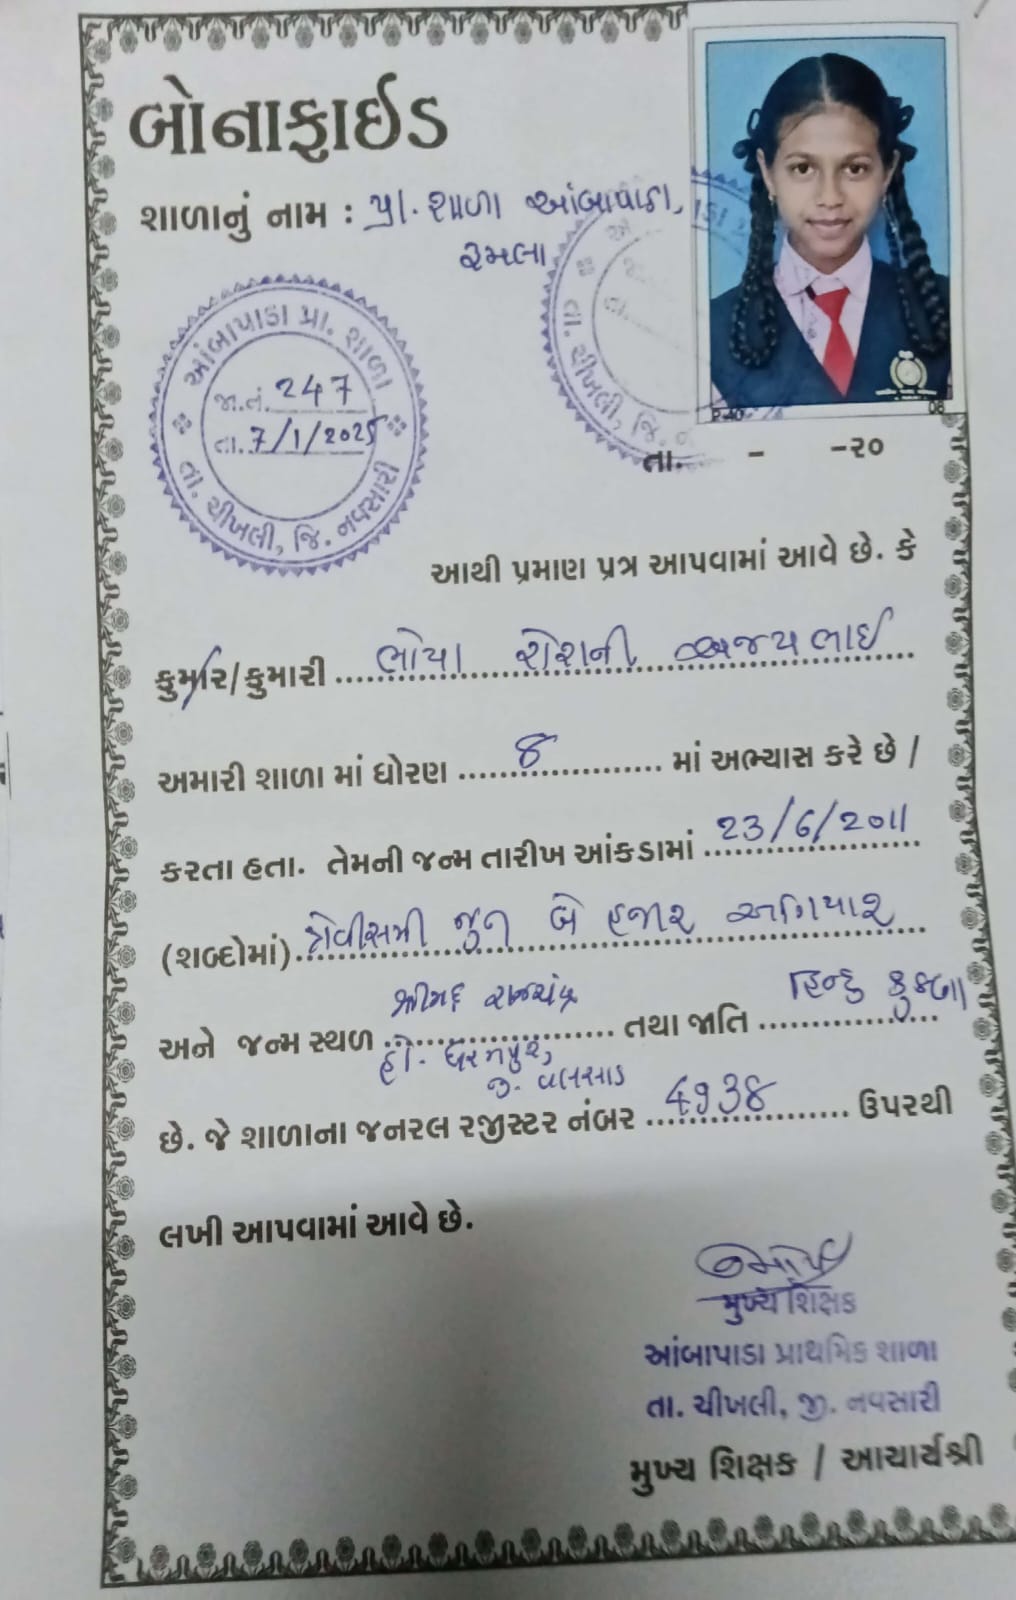 બોનાફાઈડ
શાળાનું નામ : પ્રા. શાળા આંબાપાડા,
રમલા
આંબાપાડા પ્રા. શાળા
જા.નં. 247
તા. 7/1/2025
તા. ચીખલી, જિ. નવસારી
તા. ચીખલી, જિ. ન
P-40 08
તા. - -૨૦
આથી પ્રમાણ પત્ર આપવામાં આવે છે. કે
કુમાર/કુમારી ભોયા રોશની અજયભાઈ
અમારી શાળા માં ધોરણ 8 માં અભ્યાસ કરે છે /
કરતા હતા. તેમની જન્મ તારીખ આંકડામાં 23/6/2011
(શબ્દોમાં) ત્રેવીસમી જુન બે હજાર અગિયાર
અને જન્મ સ્થળ શ્રીમદ રાજચંદ્ર તથા જાતિ હિન્દુ કુકણા
હો. ધરમપુર,
જી. વલસાડ
છે. જે શાળાના જનરલ રજીસ્ટર નંબર 4938 ઉપરથી
લખી આપવામાં આવે છે.
મુખ્ય શિક્ષક
આંબાપાડા પ્રાથમિક શાળા
તા. ચીખલી, જી. નવસારી
મુખ્ય શિક્ષક / આચાર્યશ્રી